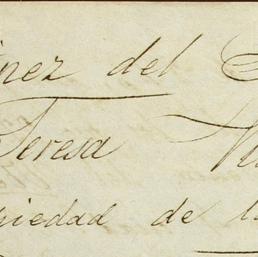 nez del
Teresa
piedad de